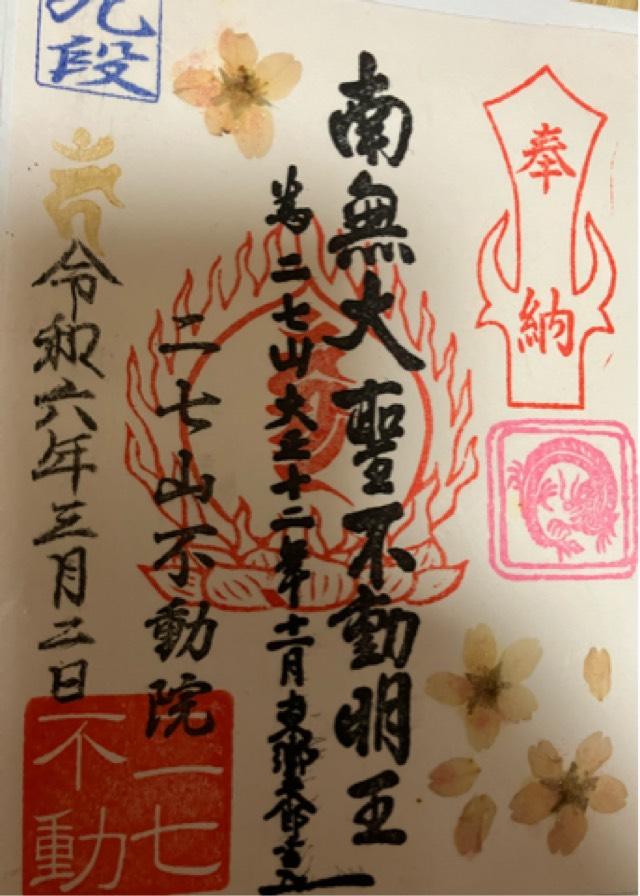 奉納
南無大聖不動明王
為二七山大正十二年十二月東郷
二七山不動院
九段
令和六年三月二日
二七
不動